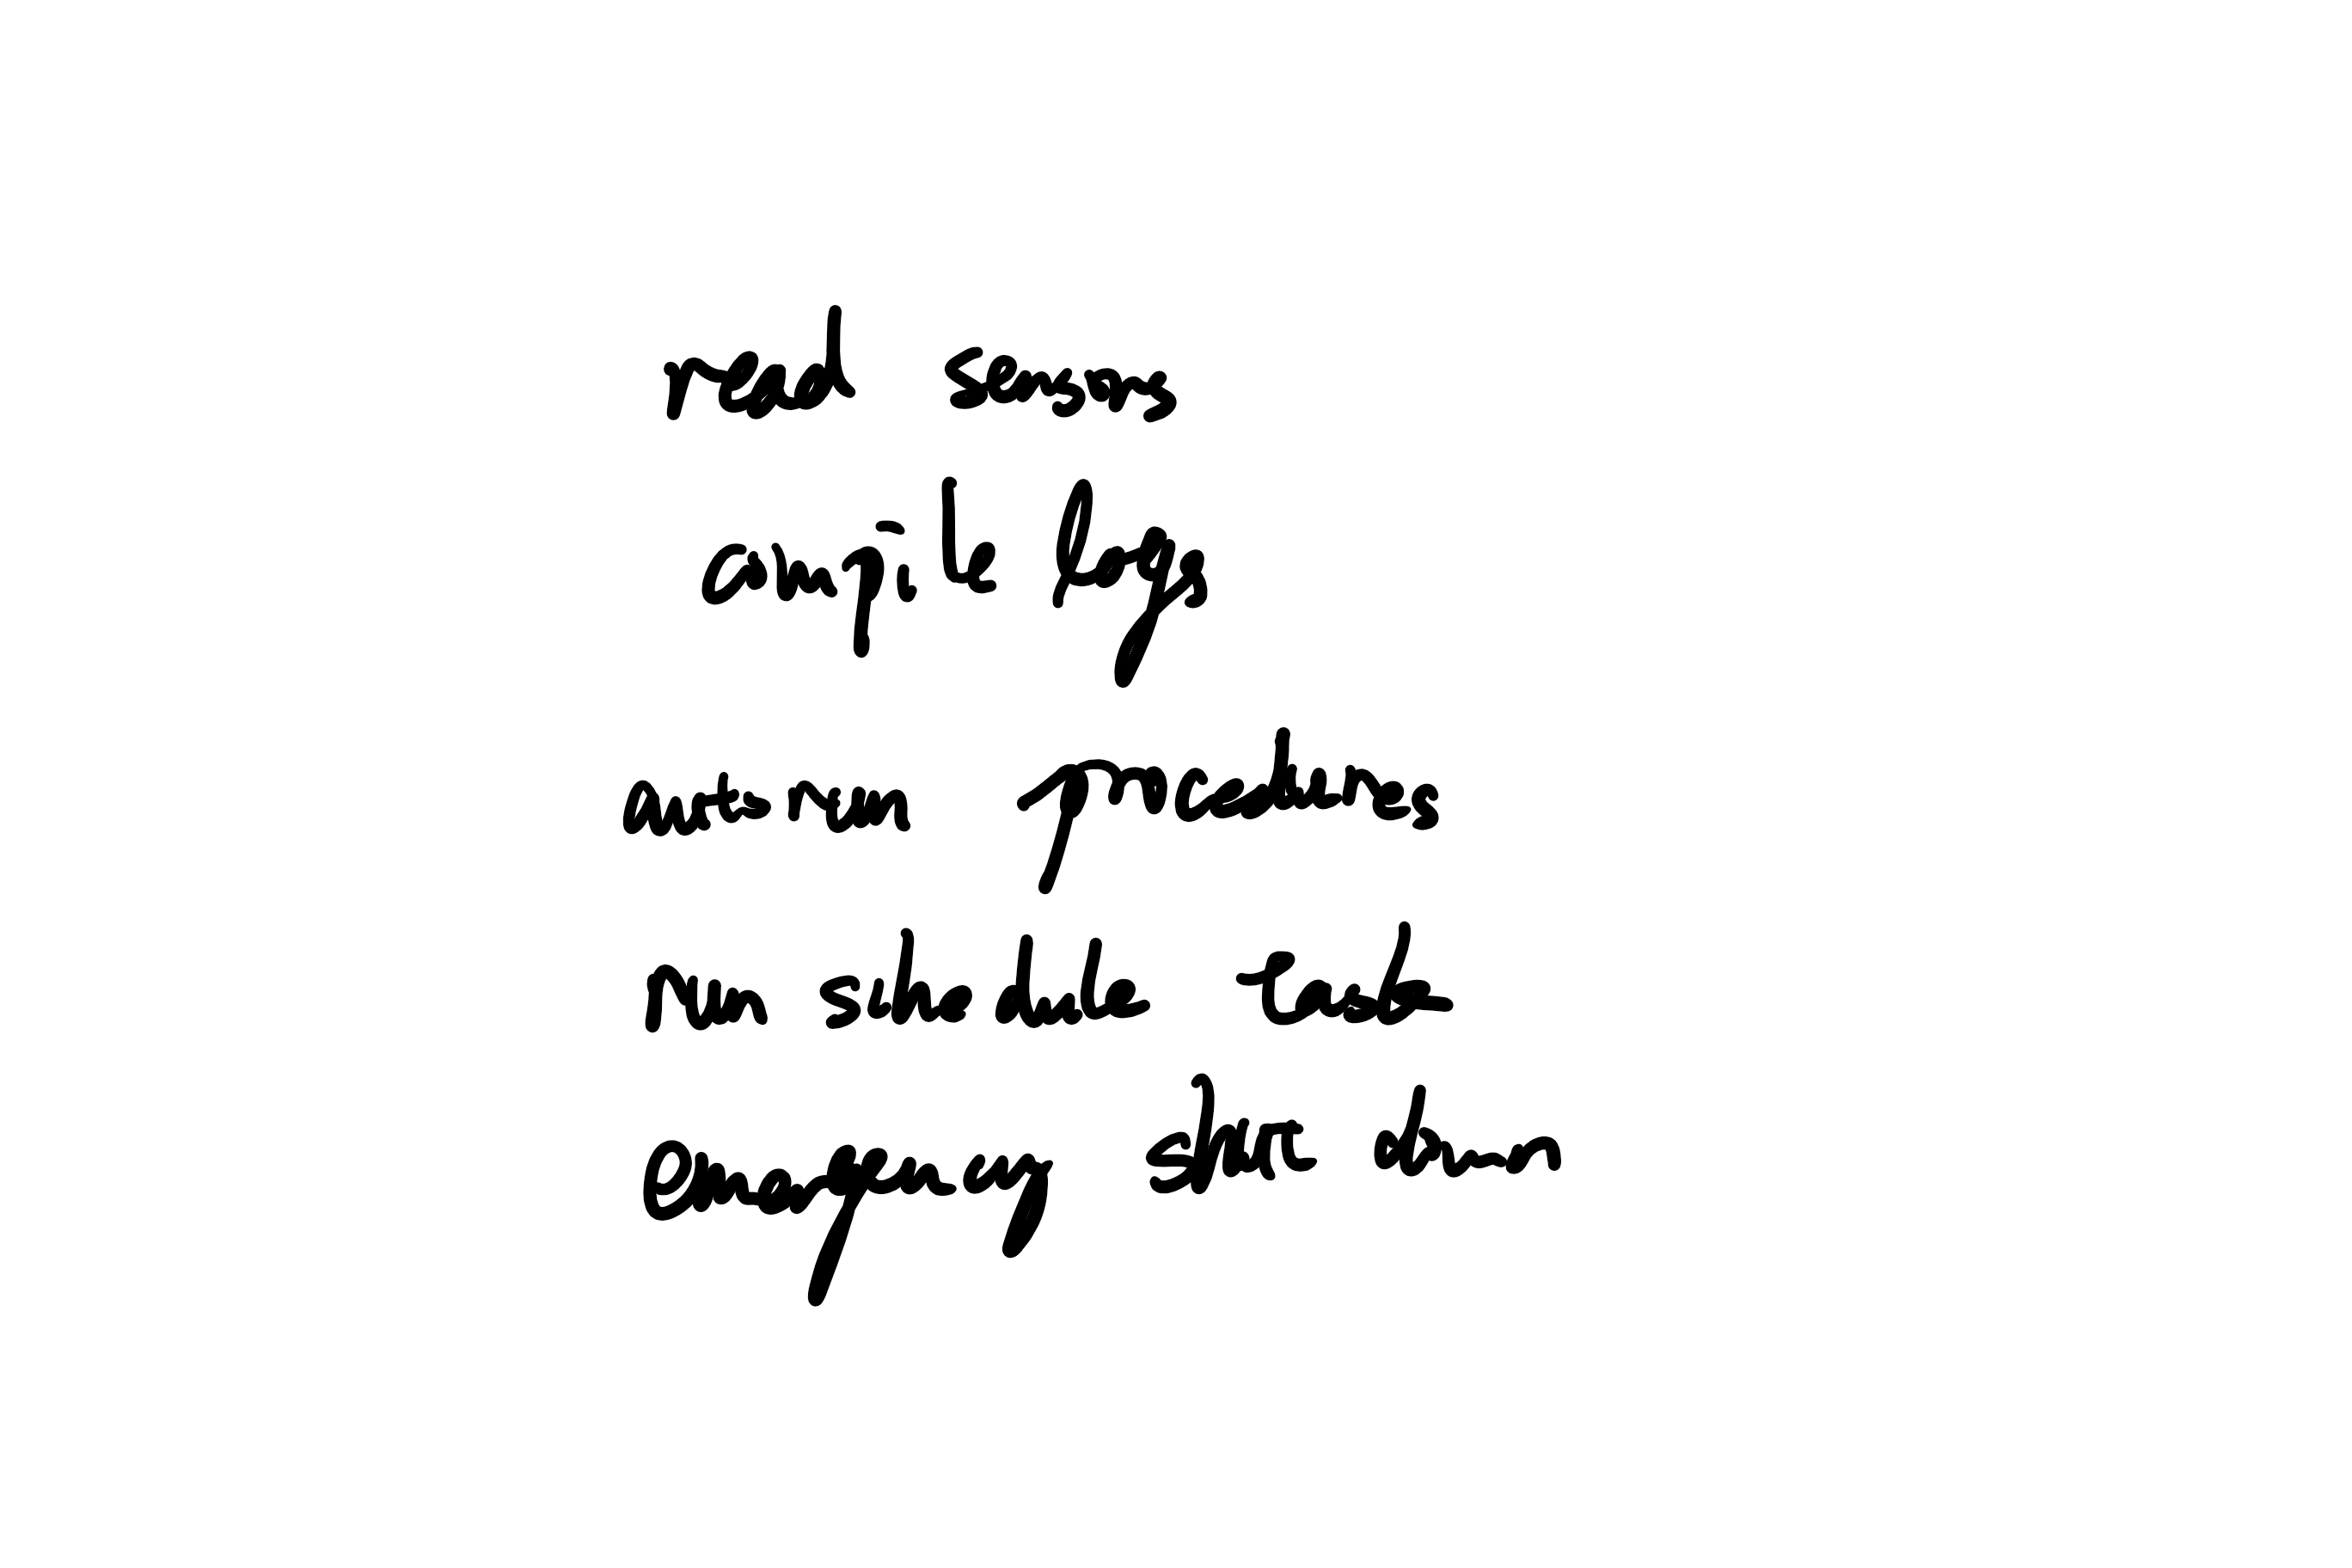 read sensors
compile logs
automation procedures
run schedule tasks
emergency shut down